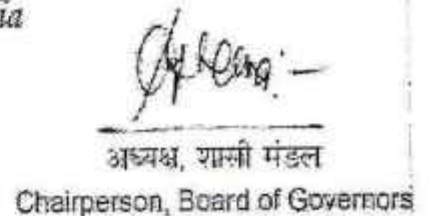 अध्यक्ष, शासी मंडल
Chairperson, Board of Governors